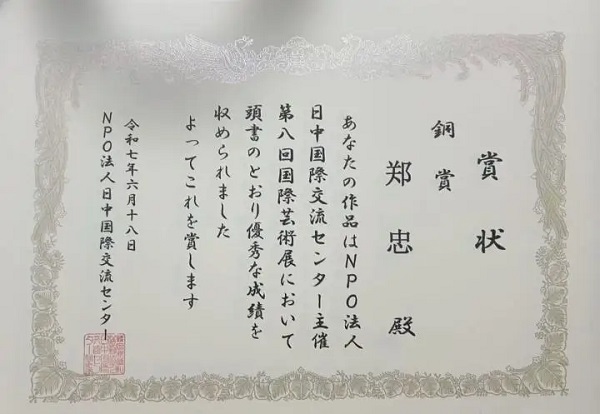 賞状
銅賞
郑忠殿
あなたの作品はNPO法人
日中国際交流センター主催
第八回国際芸術展において
頭書のとおり優秀な成績を
収められました
よってこれを賞します
令和七年六月十八日
NPO法人日中国際交流センター